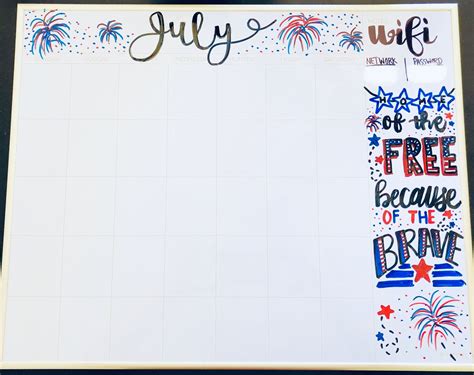 July
wifi
NETWORK | PASSWORD
HOME
of the
FREE
because
OF THE
BRAVE